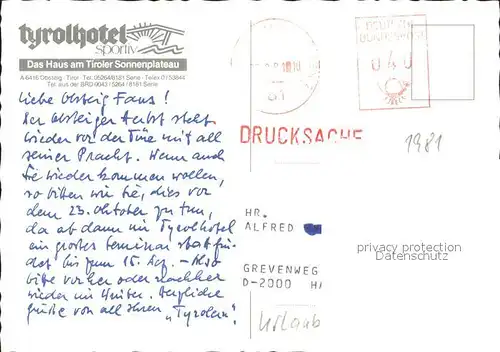 tyrolhotel
sportiv
Das Haus am Tiroler Sonnenplateau
A-6416 Obsteig · Tirol · Tel. 05264/8181 Serie · Telex 0153844
Tel. aus der BRD 0043 / 5264 / 8181 Serie
Liebe Obsteig Fans!
Der Obsteiger Herbst steht
wieder vor der Türe mit all
seiner Pracht. Wenn auch
Sie wieder kommen wollen,
so bitten wir Sie, dies vor
dem 23. Oktober zu tun,
da ab dann im Tyrolhotel
ein großes Seminar stattfin-
det bis zum 15. Also
bitte vorher oder nachher
wieder im Winter. Herzliche
Grüße von all Ihren "Tyrolern"!
DEUTSCHE
BUNDESPOST
040
81
DRUCKSACHE
1981
HR.
ALFRED
GREVENWEG
D-2000 HA
Urlaub
privacy protection
Datenschutz